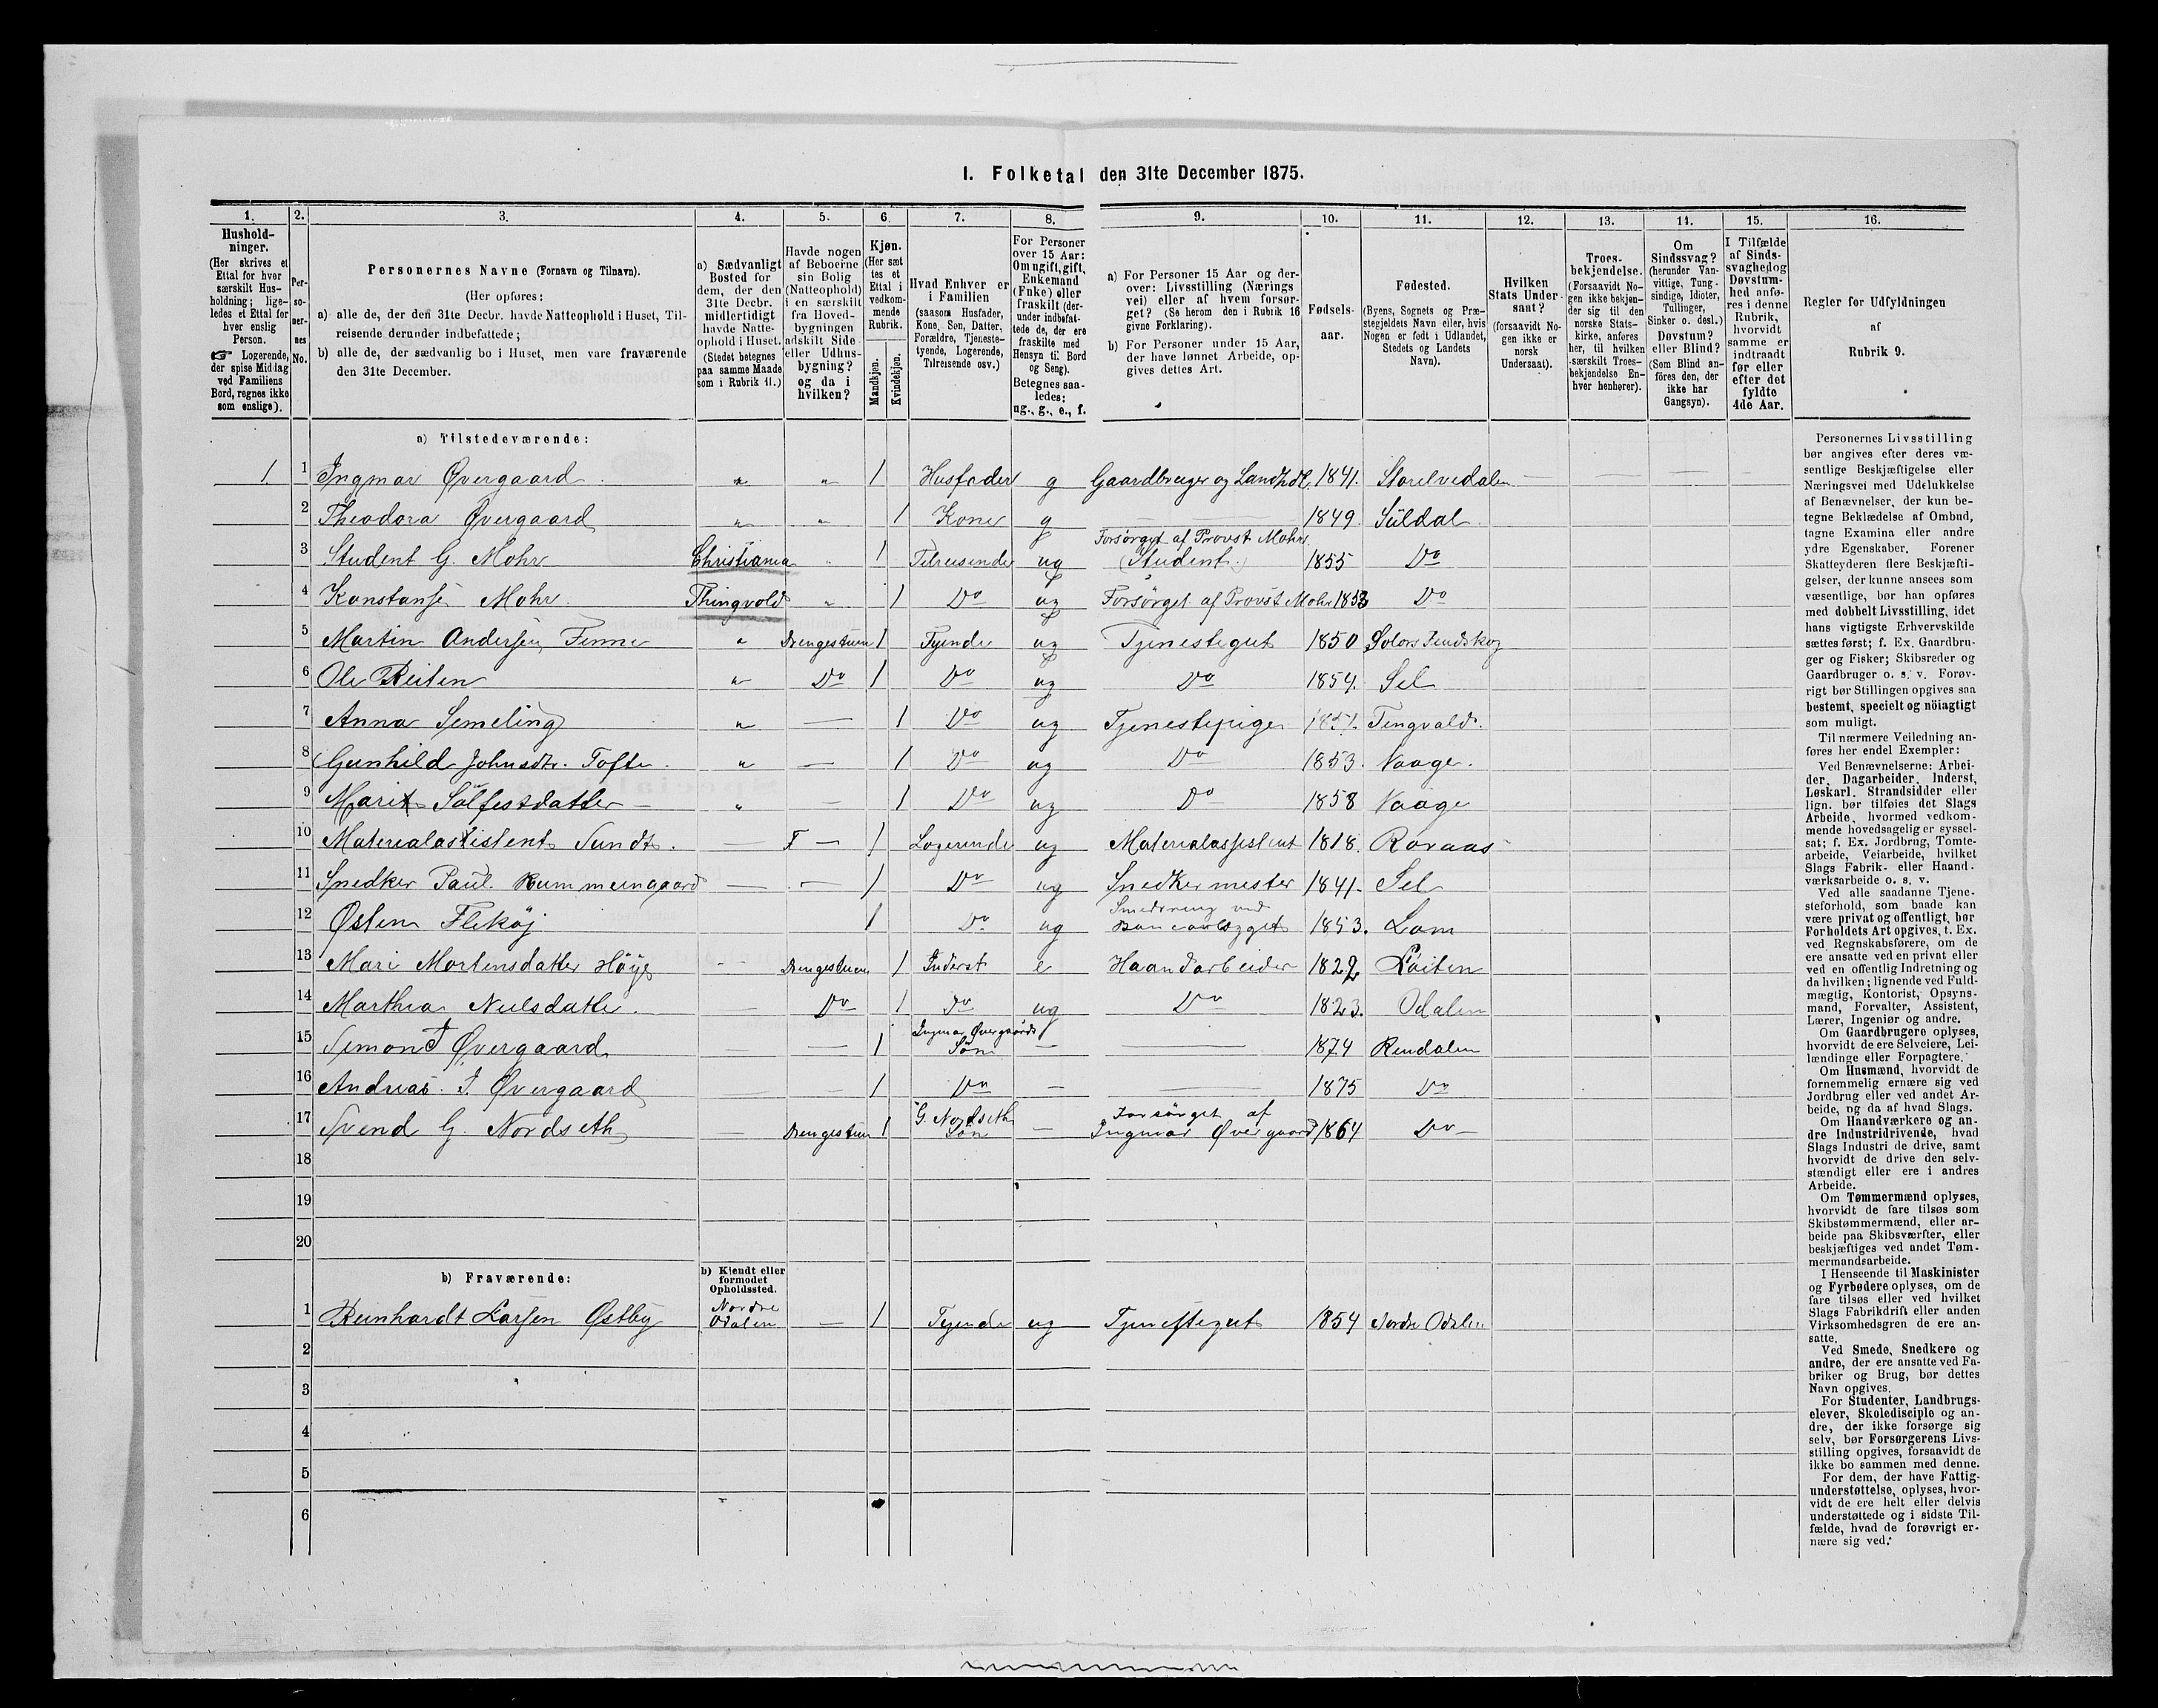 1. Folketal den 31te December 1875.
1. 2. 3. 4. 5. 6. 7. 8. 9. 10. 11. 12. 13. 14. 15. 16.
Hushold-
ninger.
(Her skrives et
Ettal for hver
særskilt Hus-
holdning; lige-
ledes et Ettal for
hver enslig
Person.
☞ Logerende,
der spise Middag
ved Familiens
Bord, regnes ikke
som enslige).
Per-
so-
ner-
nes
No.
Personernes Navne (Fornavn og Tilnavn).
(Her opføres:
a) alle de, der den 31te Decbr. havde Natteophold i Huset, Til-
reisende derunder indbefattede;
b) alle de, der sædvanlig bo i Huset, men vare fraværende
den 31te December.
a) Sædvanligt
Bosted for
dem, der den
31te Decbr.
midlertidigt
havde Natte-
ophold i Huset.
(Stedet betegnes
paa samme Maade
som i Rubrik 11.)
Havde nogen
af Beboerne
sin Bolig
(Natteophold)
i en særskilt
fra Hoved-
bygningen
adskilt Side
eller Udhus-
bygning?
og da i
hvilken?
Kjøn.
(Her sæt
tes et
Ettal i
vedkom-
mende
Rubrik.
Mandkjøn.
Kvindekjøn.
Hvad Enhver er
i Familien
(saasom Husfader,
Kone, Søn, Datter,
Forældre, Tjeneste-
tyende, Logerende,
Tilreisende osv.)
For Personer
over 15 Aar:
Om ugift, gift,
Enkemand
(Enke) eller
fraskilt (der-
under indbefat-
tede de, der ere
fraskilte med
Hensyn til Bord
og Seng).
Betegnes saa-
ledes:
ug., g., e., f.
a) For Personer 15 Aar og der-
over: Livsstilling (Nærings
vei) eller af hvem forsør-
get? (Se herom den i Rubrik 16
givne Forklaring).
b) For Personer under 15 Aar,
der have lønnet Arbeide, op-
gives dettes Art.
Fødsels-
aar.
Fødested.
(Byens, Sognets og Præ-
stegjeldets Navn eller, hvis
Nogen er født i Udlandet,
Stedets og Landets
Navn).
Hvilken
Stats Under-
saat?
(forsaavidt No-
gen ikke er
norsk
Undersaat).
Troes-
bekjendelse.
(Forsaavidt No-
gen ikke bekjen-
der sig til den
norske Stats-
kirke, anføres
her, til hvilken
særskilt Troes-
bekjendelse En-
hver henhører).
Om
Sindssvag?
(herunder Van-
vittige, Tung-
sindige, Idioter,
Tullinger,
Sinker o. desl.)
Døvstum?
eller Blind?
(Som Blind an-
føres den, der
ikke har
Gangsyn).
I Tilfælde
af Sinds-
svaghed og
Døvstum-
hed anfø-
res i denne
Rubrik,
hvorvidt
samme er
indtraadt
før eller
efter det
fyldte
4de Aar.
Regler for Udfyldningen
af
Rubrik 9.
a) Tilstedeværende:
1. 1 Ingmar Øvergaard " " 1 Husfader g Gaardbruger og Landhdl. 1841. Storelvedalen
2 Theodora Øvergaard " " 1 Kone g 1849 Süldal
3 Student G. Mohr Christiania " 1 Tilreisende ug Forsörget af Provst Mohr (Student.) 1855 Do
4 Konstanse Mohr Thingvold " 1 Do ug Forsörget af Provst Mohr 1853 Do
5 Martin Andersen " Drengestuen 1 Tyende ug Tjenestegut 1850 Solørs Findskog
6 Ole Reiten " Do 1 Do ug Do 1854. Sel
7 Anna Semeling " — 1 Do ug Tjenestepige Tingvold.
8 Gunhild Johnsdtr. Tofte " — 1 Do ug Do 1853. Vaage.
9 Marit Sölfestdatter " — 1 Do ug Do 1858 Vaage
10 Materialassistent Sundt. — F — 1 Logerende ug Materialassistent 1818. Roraas
11 Snedker Paul. — — 1 Do ug Snedkermester 1841. Sel
12 Østen Flekøj 1 Do ug 1853. Lom
13 Mari Mortensdatter Höye Drengestuen 1 Inderst e Haandarbeider 1829 Löiten
14 Marthea Neilsdatter. — Do 1 Do ug Do 1823. Odalen
15 Simon I Øvergaard — — 1 Ingmar Øvergaards Sön — 1874 Rendalen
16 Andreas. I. Øvergaard — — 1 Do — 1875 Do
17 Svend G. Nordseth — Drengestuen 1 G. Nordseth Sön — Forsörget af Ingmar Øvergaard 1864 Do
18
19
20
b) Fraværende:
b) Kjendt eller
formodet
Opholdssted.
1 Reinhardt Larsen Østby Nordre Odalen — 1 Tyende ug Tjenestegut 1854 Nordre Odalen
2
3
4
5
6
Personernes Livsstilling
bør angives efter deres væ-
sentlige Beskjæftigelse eller
Næringsvei med Udelukkelse
af Benævnelser, der kun be-
tegne Beklædelse af Ombud,
tagne Examina eller andre
ydre Egenskaber. Forener
Skatteyderen flere Beskjæfti-
gelser, der kunne ansees som
væsentlige, bør han opføres
med dobbelt Livsstilling, idet
hans vigtigste Erhvervskilde
sættes først; f. Ex. Gaardbru-
ger og Fisker; Skibsreder og
Gaardbruger o. s. v. Forøv-
rigt bør Stillingen opgives saa
bestemt, specielt og nöiagtigt
som muligt.
Til nærmere Veiledning an-
føres her endel Exempler:
Ved Benævnelserne: Arbei-
der, Dagarbeider, Inderst,
Løskarl, Strandsidder eller
lign. bør tilføies det Slags
Arbeide, hvormed vedkom-
mende hovedsagelig er syssel-
sat; f. Ex. Jordbrug, Tomte-
arbeide, Veiarbeide, hvilket
Slags Fabrik- eller Haand-
værksarbeide o. s. v.
Ved alle saadanne Tjene-
steforhold, som baade kan
være privat og offentligt, bør
Forholdets Art opgives, t. Ex.
ved Regnskabsførere, om de
ere ansatte ved en privat eller
ved en offentlig Indretning og
da hvilken; lignende ved Fuld-
mægtig, Kontorist, Opsyns-
mand, Forvalter, Assistent,
Lærer, Ingeniør og andre.
Om Gaardbrugere oplyses,
hvorvidt de ere Selveiere, Lei-
lændinge eller Forpagtere.
Om Husmænd, hvorvidt de
fornemmelig ernære sig ved
Jordbrug eller ved andet Ar-
beide, og da af hvad Slags.
Om Haandværkere og an-
dre Industridrivende, hvad
Slags Industri de drive, samt
hvorvidt de drive den selv-
stændigt eller ere i andres
Arbeide.
Om Tømmermænd oplyses,
hvorvidt de fare tilsøs som
Skibstømmermænd, eller ar-
beide paa Skibsværfter, eller
beskjæftiges ved andet Tøm-
mermandsarbeide.
I Henseende til Maskinister
og Fyrbødere oplyses, om de
fare tilsøs eller ved hvilket
Slags Fabrikdrift eller anden
Virksomhedsgren de ere an-
satte.
Ved Smede, Snedkere og
andre, der ere ansatte ved Fa-
briker og Brug, bør dettes
Navn opgives.
For Studenter, Landbrugs-
elever, Skoledisciple og an-
dre, der ikke forsørge sig
selv, bør Forsørgerens Livs-
stilling opgives, forsaavidt de
ikke bo sammen med denne.
For dem, der have Fattig-
understøttelse, oplyses, hvor-
vidt de ere helt eller delvis
understøttede og i sidste Til-
fælde, hvad de forøvrigt er-
nære sig ved.